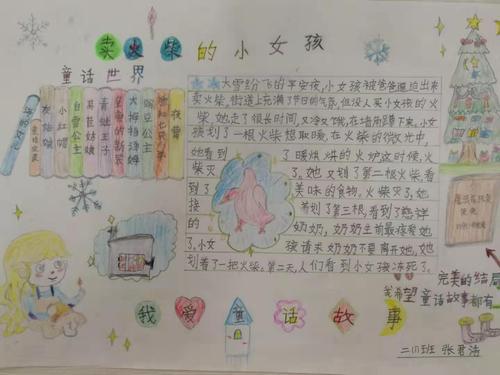 卖火柴的小女孩
童话世界
灰姑娘
小红帽
白雪公主
青蛙王子
皇帝的新装
拇指姑娘
豌豆公主
夜莺
大雪纷飞的平安夜,小女孩被爸爸逼迫出来
卖火柴,街道上充满了节日的气氛,但没人买小女孩的火
柴,她走了很长时间,又冷又饿,在墙角蹲下来。小女
孩划了一根火柴想取暖,在火柴的微光中,
她看到了暖烘烘的火炉这时候,火
柴灭了。她又划了第一根火柴,看
到了美味的食物。火柴灭了。她
接着划了第三根,看到了慈祥
的奶奶,奶奶生前最疼爱她
了。小女孩请求奶奶不要离开她,她
划着了一把火柴。第二天,人们看到小女孩冻死了。
我希望童话故事都有
完美的结局
我爱童话故事
二(1)班 张君洁